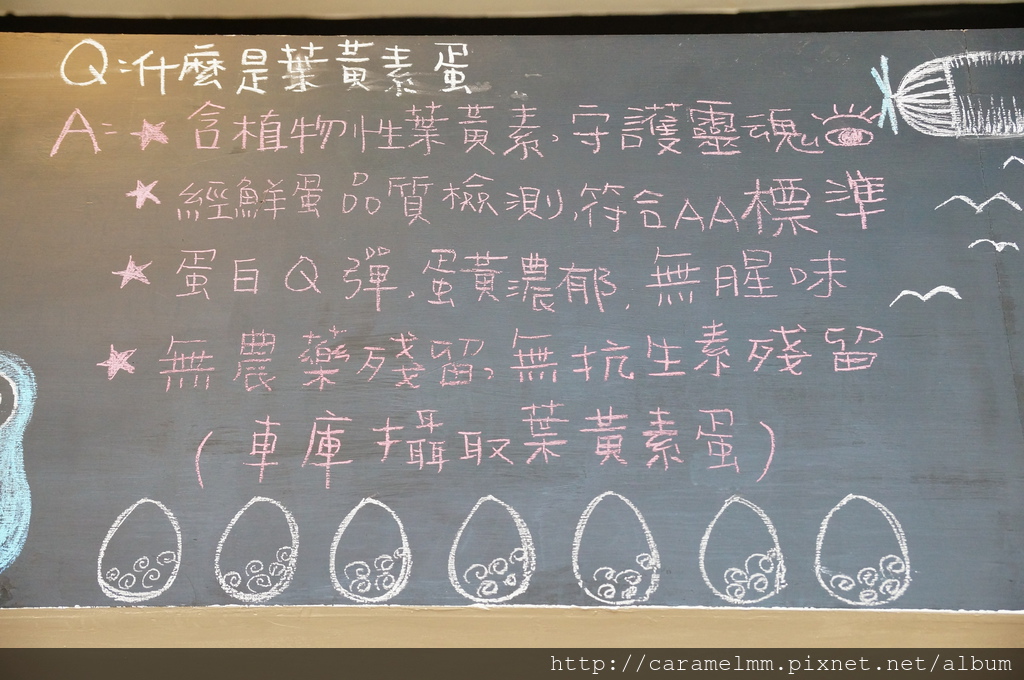 Q:什麼是葉黃素蛋
A:★含植物性葉黃素,守護靈魂
★經鮮蛋品質檢測,符合AA標準
★蛋白Q彈,蛋黃濃郁,無腥味
★無農藥殘留,無抗生素殘留
(車庫攝取葉黃素蛋)
http://caramelmm.pixnet.net/album